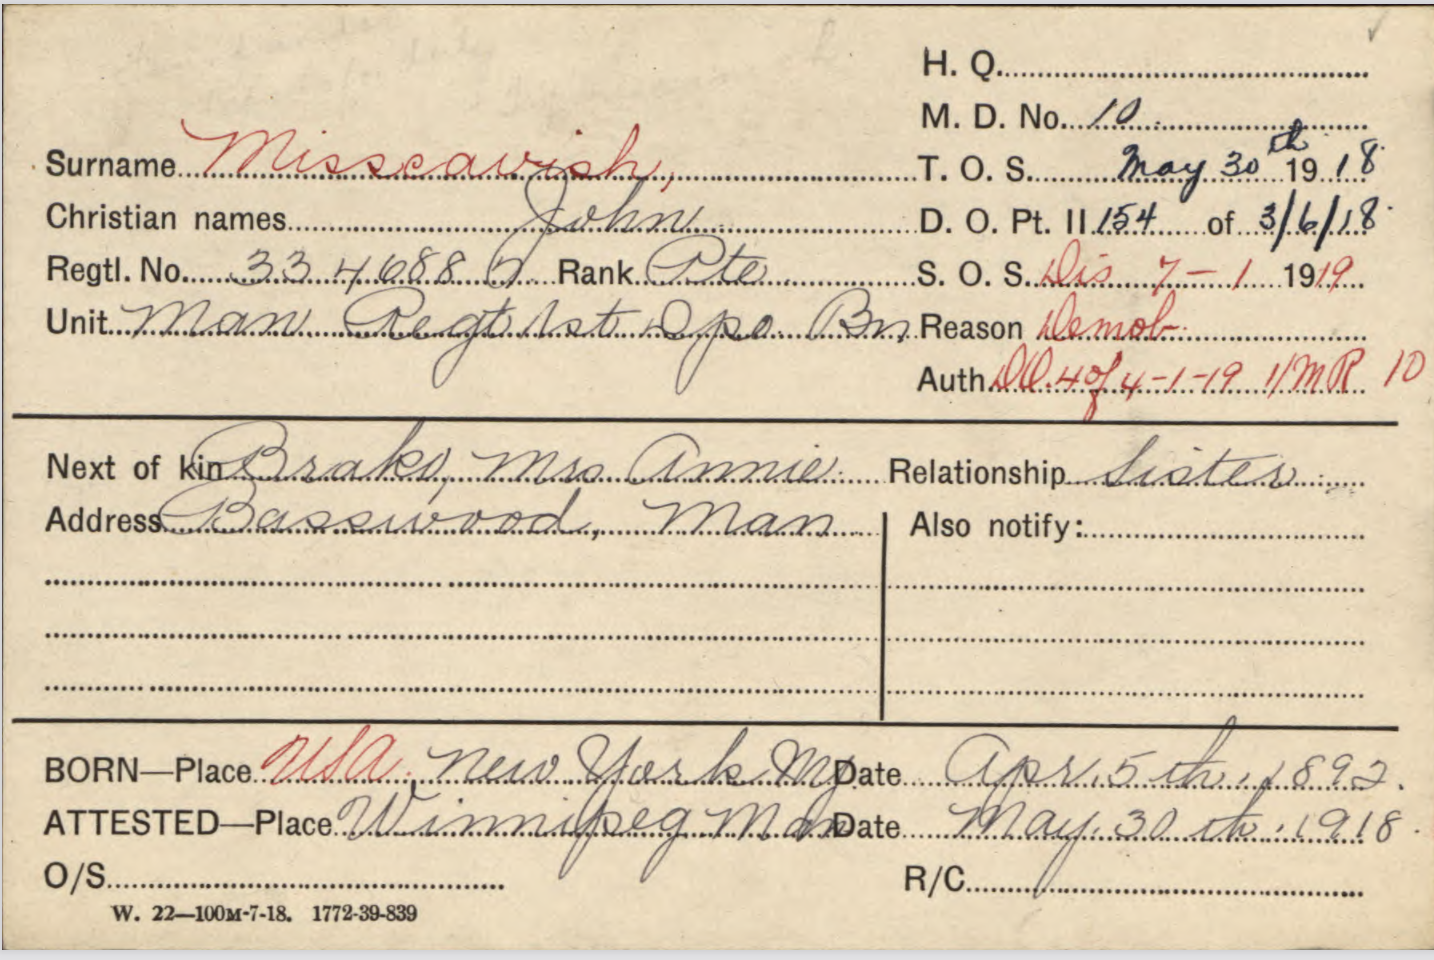 H. Q.
M. D. No. 10
Surname Misscavish, T. O. S. May 30th 1918
Christian names John D. O. Pt. II 154 of 3/6/18
Regtl. No. 334688 Rank Pte S. O. S. Dis 7-1 1919
Unit Man Regt 1st Dpo Bn Reason Demob
Auth DO. 4 of 4-1-19 MR 10
Next of kin Brako, Mrs Annie Relationship Sister
Address Basswood, Man Also notify:
BORN—Place USA. New York Date Apr. 5th. 1892.
ATTESTED—Place Winnipeg Man Date May. 30th. 1918.
O/S R/C
W. 22—100M-7-18. 1772-39-839